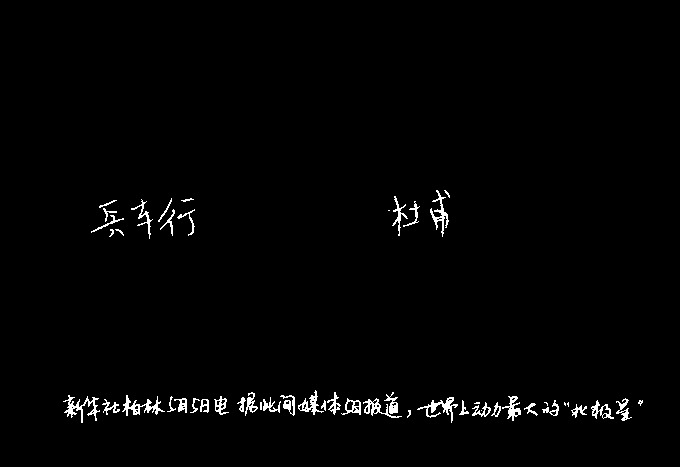 兵车行 杜甫
新华社柏林5月5日电 据此间媒体5日报道，世界上动力最大的“北极星”